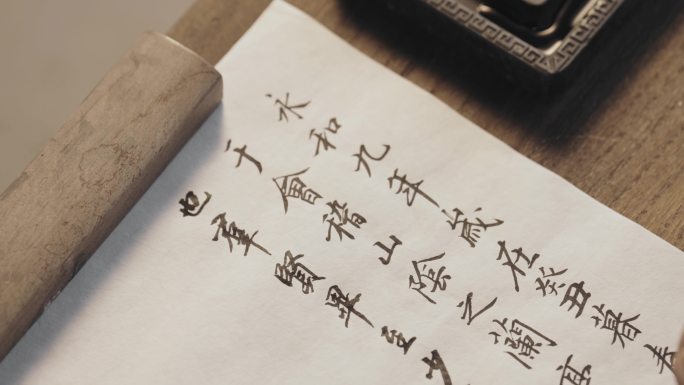 永和九年歲在癸丑暮春
于會稽山陰之蘭亭
也羣賢畢至少